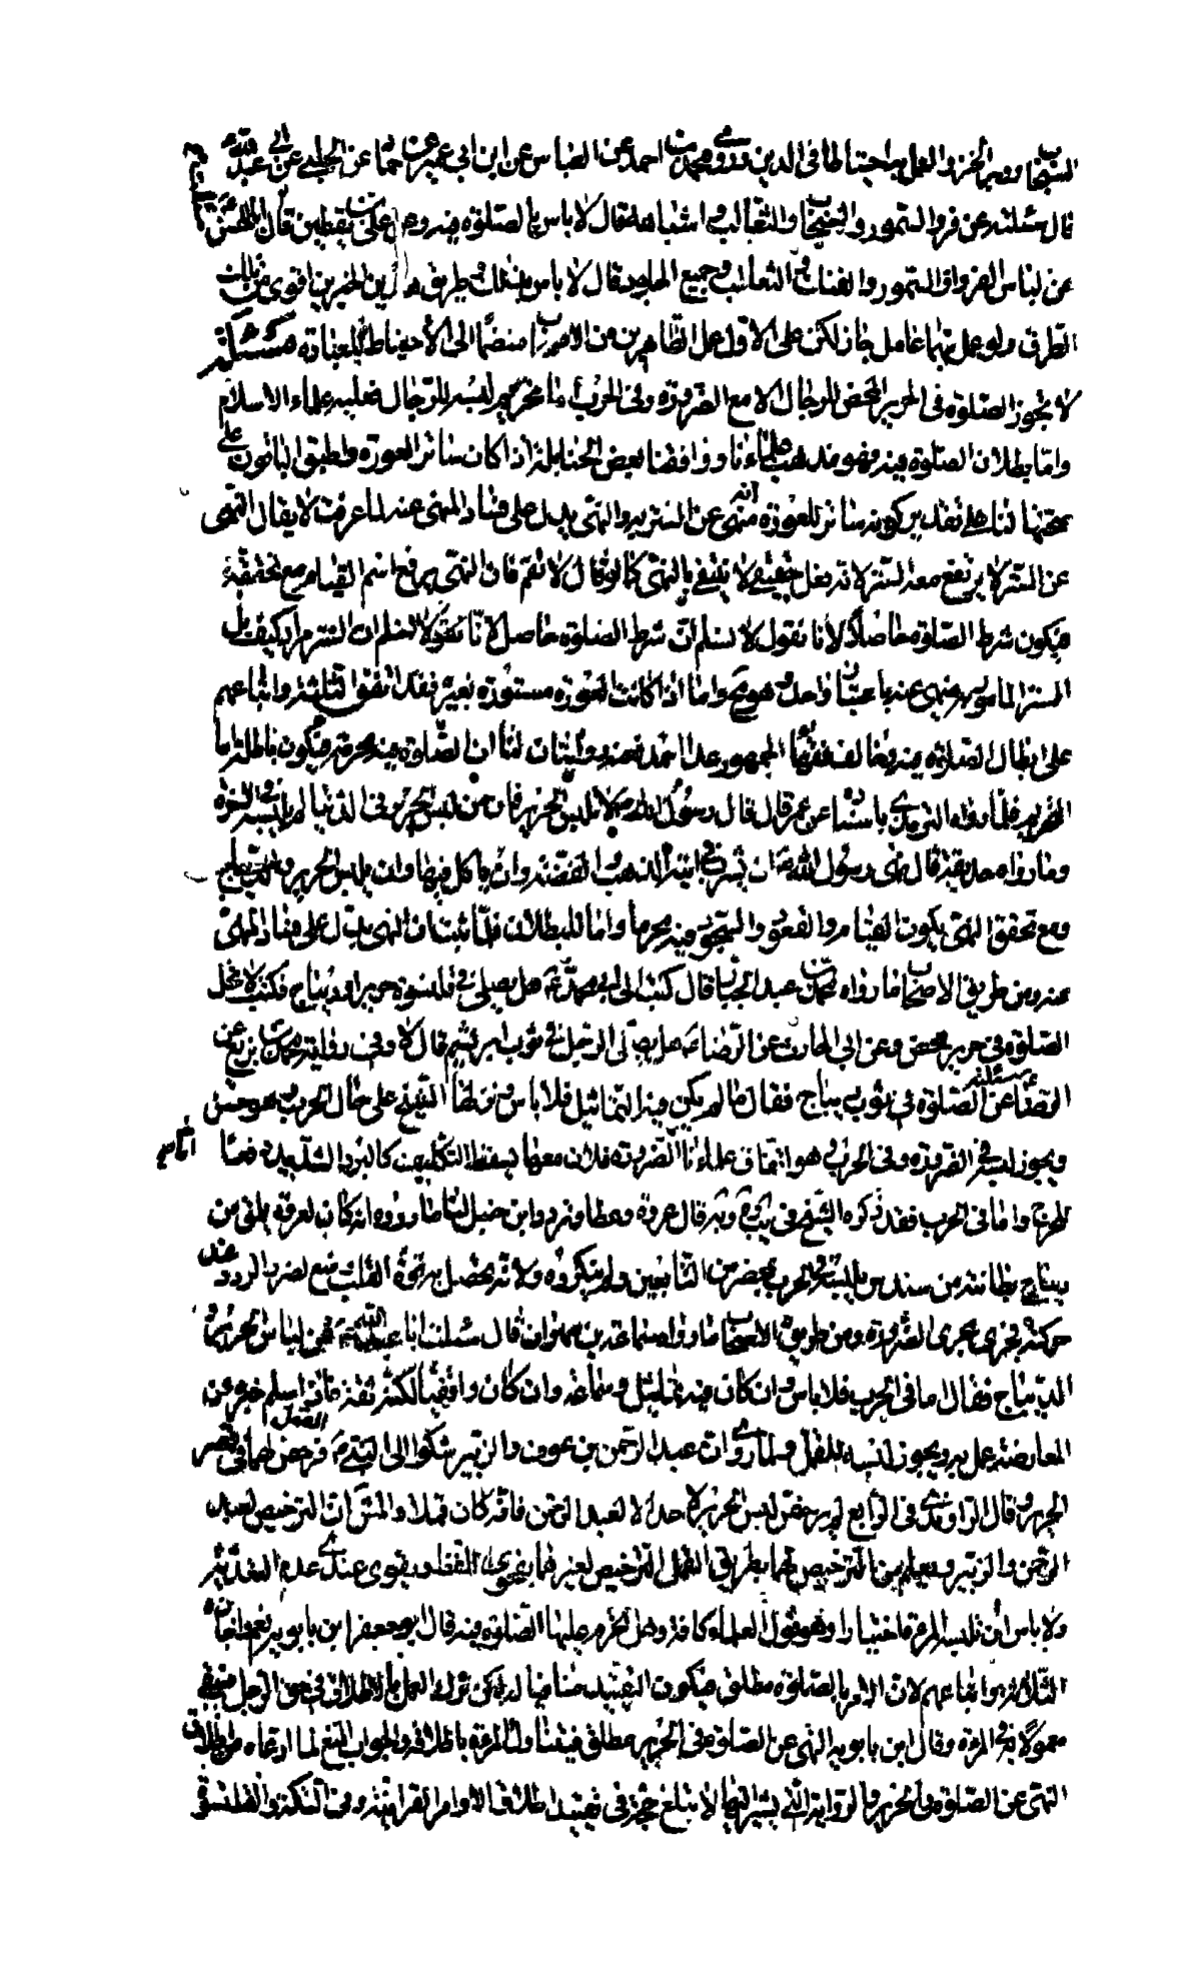 السنجاب وبر الخز والعمل بها احتياطا في الدين وروى محمد بن احمد عن العباس عن ابن ابي عمير عن حماد عن الحلبي عن ابي عبد الله ع
قال سئلته عن فرو السمور والسنجاب والثعالب واشباهه قال لا باس بالصلوة فيه وعن علي بن يقطين قال سالت ابا الحسن ع
عن لباس الفرو والسمور والفنك والثعالب وجميع الجلود قال لا باس بذلك وطريق هذين الخبرين اقوى من تلك
الطرق ولو عمل بهما عامل جاز لكن على الاول عمل الظاهرين من الاصحاب منضما الى الاحتياط للعبادة مسئلة
لا تجوز الصلوة في الحرير المحض للرجال الا مع الضرورة وفي الحرب اما تحريم لبسه للرجال فعليه علماء الاسلام
واما بطلان الصلوة فيه فهو مذهب علماءنا ووافقنا بعض الحنابلة اذا كان ساتر العورة واطبق الباقون على
صحتها لنا على تقدير كونه ساتر للعورة انه منهي عن الستر به والنهي يدل على فساد المنهي عنه لما عرفت لا يقال النهي
عن الستر لا يرتفع معه الستر لانه فعل حقيقي لا ينتفي بالنهي كما لو قال لا تقم فان النهي يرفع اسم القيام مع تحققه
فيكون شرط الصلوة حاصلا لانا نقول لا نسلم ان شرط الصلوة حاصل لانا نقول لا نسلم ان الستر مراد كيف بل
الستر المامور به منهي عنه باعتبار واحد وهو قبيح واما اذا كانت العورة مستورة بغيره فقد اتفق الثلثة واتباعهم
على ابطال الصلوة فيه وخالف فقهاء الجمهور عدا احمد فعنه روايتان لنا ان الصلوة فيه محرمة فيكون باطلة اما
التحريم فلما رواه الترمذي باسناده عن عمر قال قال رسول الله ص لا تلبسوا الحرير فان من لبس الحرير في الدنيا لم يلبسه في الاخرة
وما رواه حذيفة قال نهى رسول الله ص ان يشرب في انية الذهب والفضة وان ياكل فيها وان يلبس الحرير والديباج
ومع تحقق النهي يكون القيام والقعود والسجود فيه محرما واما للبطلان فلما ثبت ان النهي يدل على فساد المنهي
عنه ومن طريق الاصحاب ما رواه محمد بن عبد الجبار قال كتبت الى ابي محمد ع هل يصلى في قلنسوة حرير او ديباج فكتب لا تحل
الصلوة في حرير محض وعن ابي الحارث عن الرضا ع هل يصلى الرجل في ثوب ابريشم قال لا وفي رواية محمد بن بزيع عن
الرضا ع سئلته عن الصلوة في ثوب ديباج فقال ما لم يكن فيه التماثيل فلا باس ونزلها الشيخ على حال الحرب وهو حسن
ويجوز لبسه في الضرورة وفي الحرب وهو اتفاق علماءنا اما الضرورة فلان معها يسقط التكليف كالبرد الشديد دفعا
للحرج واما في الحرب فقد ذكره الشيخ في النهاية وبه قال عروة وعطا وفرد وابن حنبل لنا ما رووه انه كان لعروة يلمق من
ديباج بطانته من سندس يلبسه في الحرب بمحضر من التابعين ولم ينكروه ولانه تحصل به قوة القلب منع لضرر الزرد عند
حركته فجرى مجرى الضرورة ومن طريق الاصحاب ما رواه سماعة بن مهران قال سئلت ابا عبد الله ع عن لباس الحرير و
الديباج فقال اما في الحرب فلا باس وان كان فيه تماثيل وسماعة وان كان واقفيا لكنه ثقة فاذا سلم خبره من
المعارضة عمل به ويجوز لبسه للقمل لما روي ان عبد الرحمن بن عوف والزبير شكوا الى النبي ص القمل فرخص لهما في قميص
الحرير وقال الراوندي في الرابع لم يرخص لبس الحرير لاحد الا لعبد الرحمن فانه كان قملا والمشهور ان الترخيص لعبد
الرحمن والزبير ويعلم من الترخيص لهما بطريق القمل الترخيص لغيرهما بفحوى اللفظ ويقوى عندي عدم التعدية
ولا باس ان تلبسه المرءة اختيارا وهو قول العلماء كافة وهل تحرم عليها الصلوة فيه قال ابو جعفر ابن بابويه نعم واجازه
الثلاثة واتباعهم لان الامر بالصلوة مطلق فيكون التقييد منافيا لكن ترك العمل بالاطلاق في حق الرجل فيبقى
معمولا به في المرءة وقال ابن بابويه النهي عن الصلوة في الحرير مطلق فيتناول المرءة باطلاقه والجواب المنع لما ادعاه من اطلاق
النهي عن الصلوة في الحرير والرواية التي يشير اليها لا تبلغ حجة في تقييد اطلاق الاوامر القرانية وفي التكة والقلنسوة